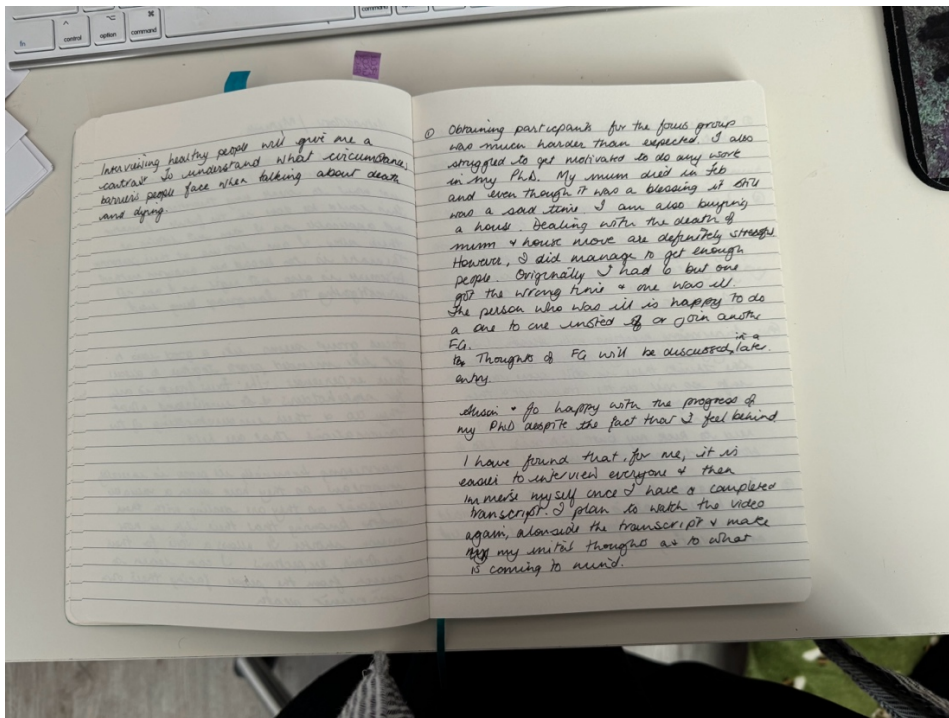 fn
control
option
command
command
Interviewing healthy people will give me a
contrast to understand what circumstance,
barriers people face when talking about death
and dying.
① Obtaining participants for the focus group
was much harder than expected. I also
struggled to get motivated to do any work
in my PhD. My mum died in Feb
and even though it was a blessing it still
was a sad time. I am also buying
a house. Dealing with the death of
mum + house move are definitely stressful.
However, I did manage to get enough
people. Originally I had 6 but one
got the wrong time + one was ill.
The person who was ill is happy to do
a one to one insted of or join anothe
FG.
Thoughts of FG will be discussed, in a later
entry.
+ Jo happy with the progress of
my PhD despite the fact that I feel behind
I have found that, for me, it is
easier to interview everyone + then
immerse myself once I have a completed
transcript. I plan to watch the video
again, alongside the transcript + make
my initial thoughts as to what
is coming to mind.